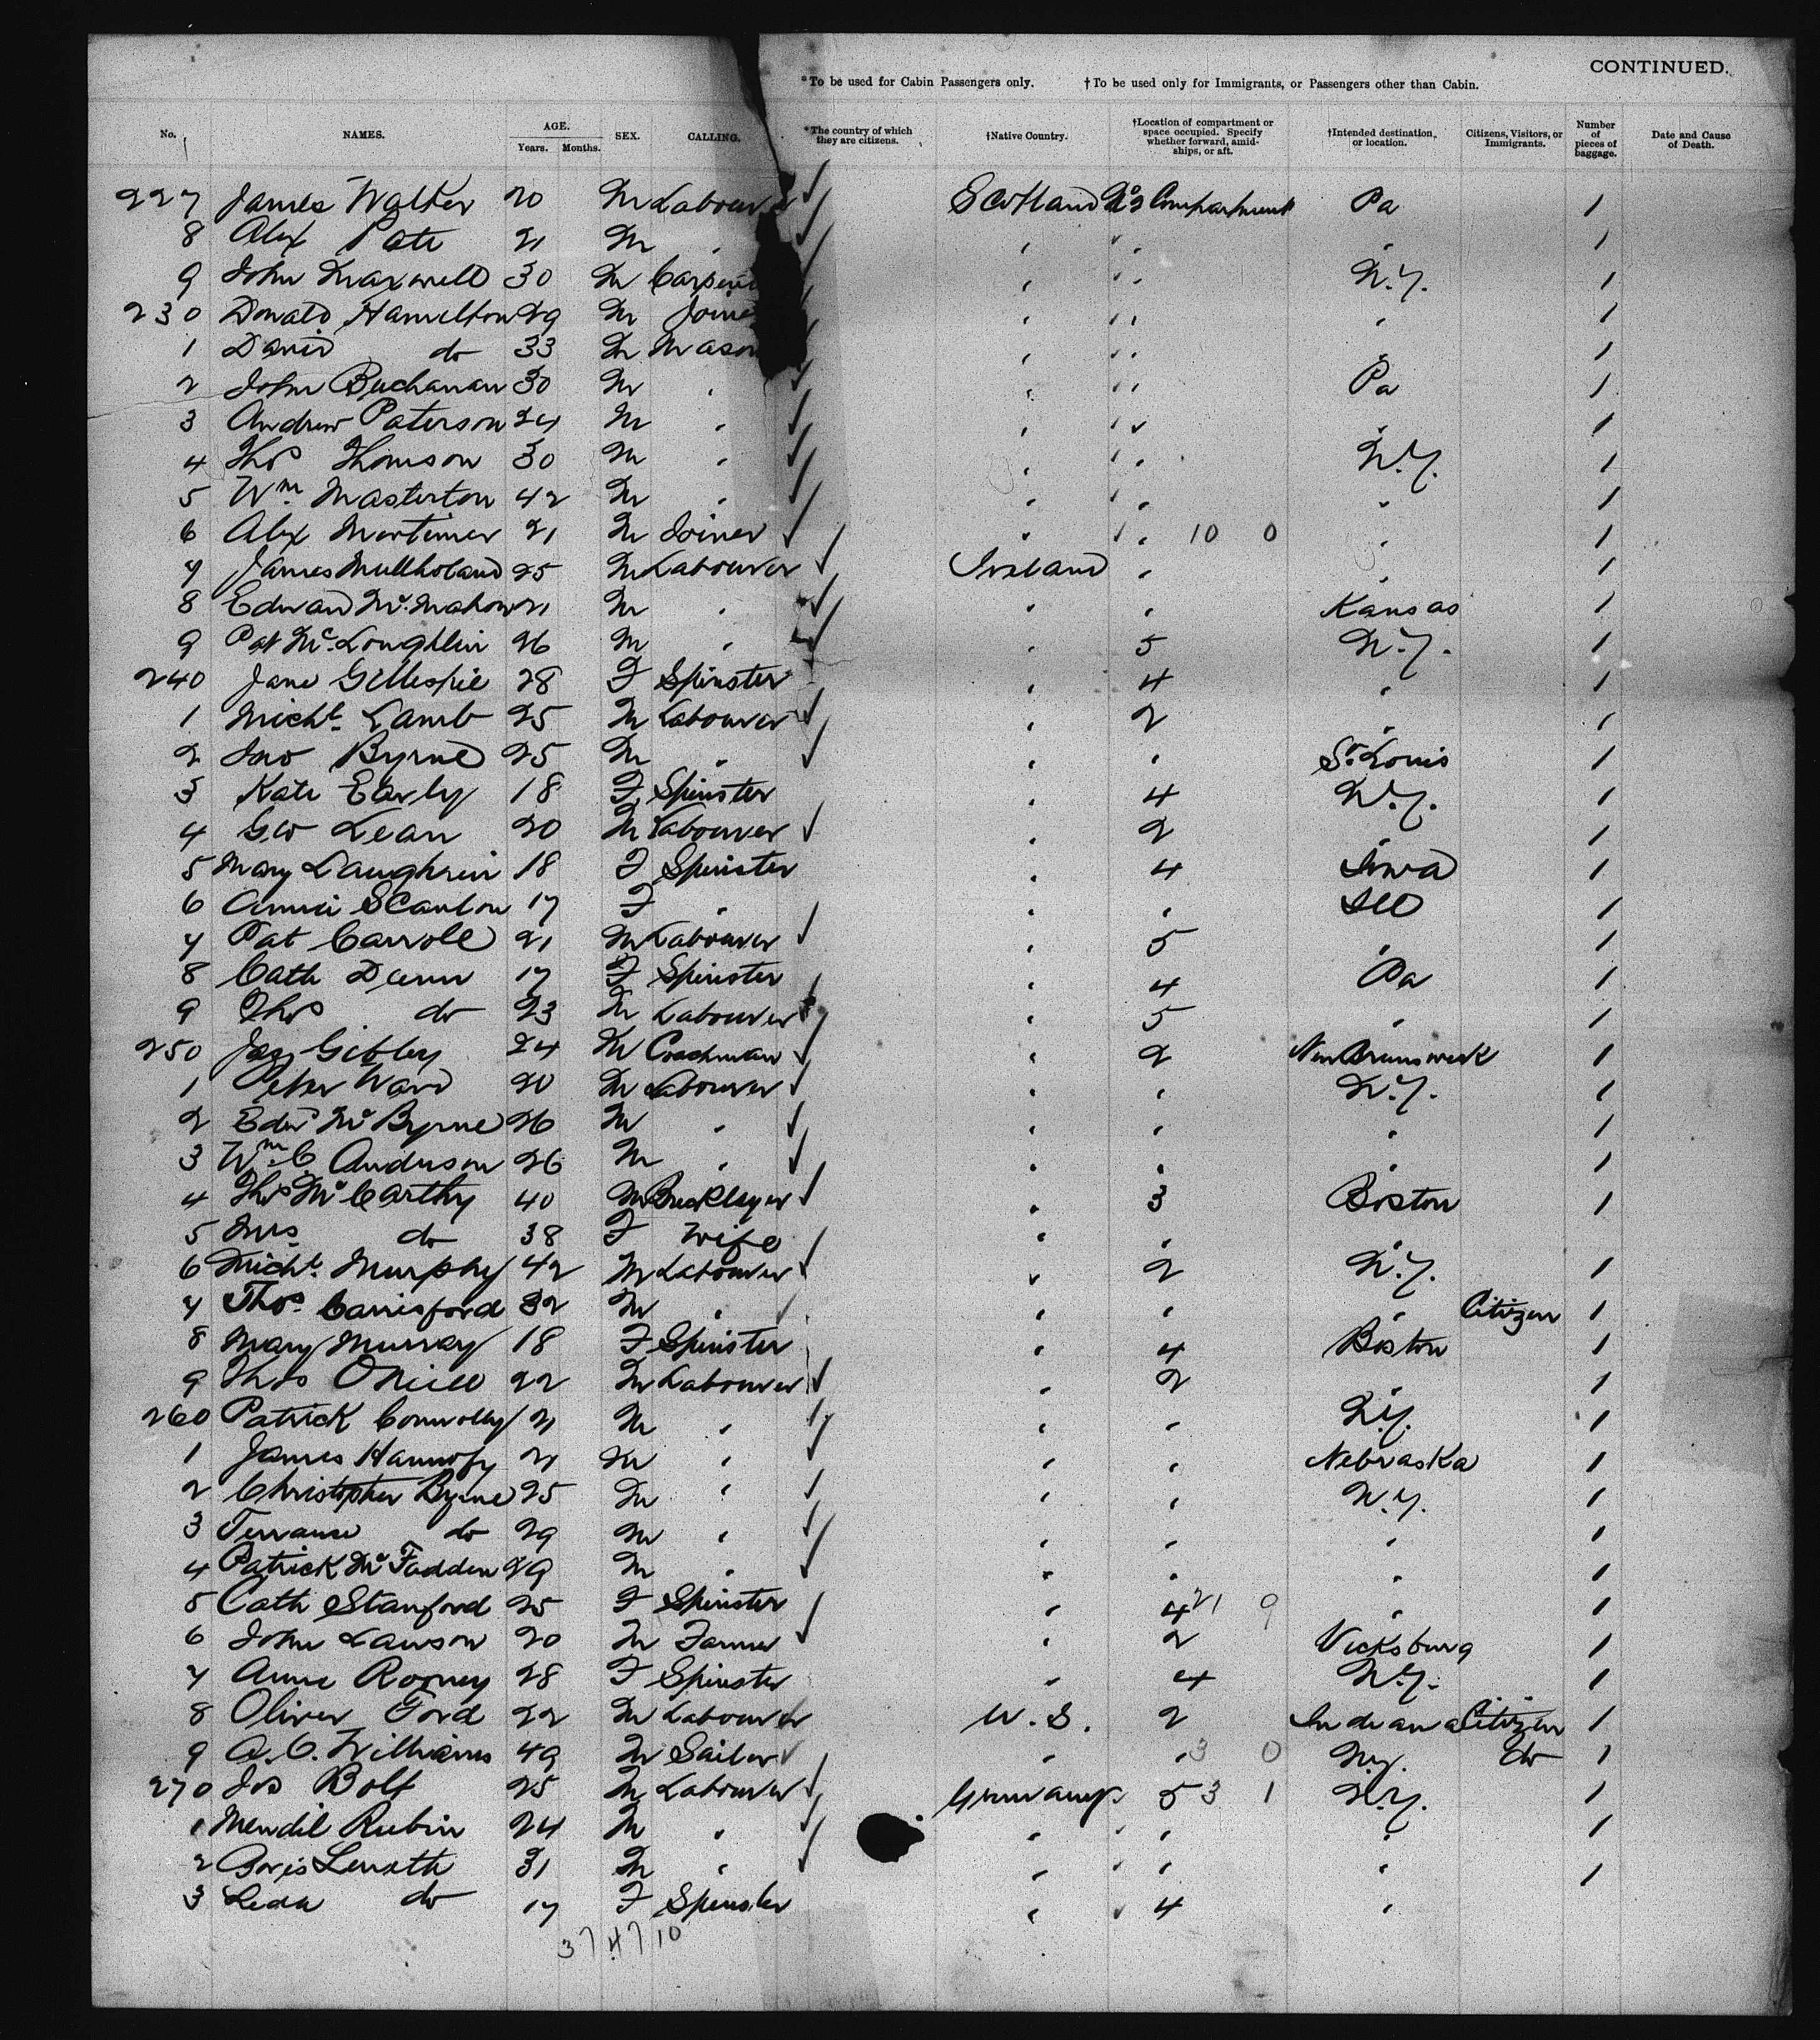 CONTINUED.
*To be used for Cabin Passengers only. †To be used only for Immigrants, or Passengers other than Cabin.
No. NAMES. AGE. Years. Months. SEX. CALLING. *The country of which they are citizens. †Native Country. †Location of compartment or space occupied. Specify whether forward, amidships, or aft. †Intended destination, or location. Citizens, Visitors, or Immigrants. Number of pieces of baggage. Date and Cause of Death.
227 James Walker 20 M Labourer Scotland No 2 Compartment Pa 1
8 Alex Pate 21 M " " " " 1
9 John Maxwell 30 M " " N.Y. 1
230 Donald Hamilton 29 M Joiner " " " 1
1 David do 33 M Mason " " " 1
2 John Buchanan 30 M " " " Pa 1
3 Andrew Paterson 24 M " " " " 1
4 Thos Thomson 30 M " " " N.Y. 1
5 Wm Masterton 42 M " " " " 1
6 Alex Mortimer 21 M Joiner " " 10 0 " 1
7 James Mullholand 25 M Labourer Ireland " " 1
8 Edward McMahon 21 M " " " Kansas 1
9 Pat McLoughlin 26 M " " 5 N.Y. 1
240 Jane Gillespie 28 F Spinster " 4 " 1
1 Michl Lamb 25 M Labourer " 2 " 1
2 Jno Byrne 25 M " " " St. Louis 1
3 Kate Early 18 F Spinster " 4 N.Y. 1
4 Geo Lean 20 M Labourer " 2 " 1
5 Mary Laughrin 18 F Spinster " 4 Iowa 1
6 Annie Scanlon 17 F " " " Ill 1
7 Pat Carroll 21 M Labourer " 5 " 1
8 Cath Dunn 17 F Spinster " 4 Pa 1
9 Thos do 23 M Labourer " 5 " 1
250 Jas Gibley 24 M Coachman " 2 New Brunswick 1
1 Peter Ward 20 M Labourer " " N.Y. 1
2 Edwd McByrne 26 M " " " " 1
3 Wm C Anderson 26 M " " " " 1
4 Thos McCarthy 40 M Bricklayer " 3 Boston 1
5 Mrs do 38 F Wife " " "
6 Michl Murphy 42 M Labourer " 2 N.Y. 1
7 Thos Carrisford 32 M " " " " Citizen 1
8 Mary Murray 18 F Spinster " 4 Boston 1
9 Thos ONeill 22 M Labourer " 2 " 1
260 Patrick Connolly 21 M " " " N.Y. 1
1 James 21 M " " " Nebraska 1
2 Christopher Byrne 25 M " " " N.Y. 1
3 Terrance do 29 M " " " " 1
4 Patrick McFadden 29 M " " " " 1
5 Cath Stanford 25 F Spinster " 4 21 9 " 1
6 John Lawson 20 M Farmer " 2 Vicksburg 1
7 Anne Rooney 28 F Spinster " 4 N.Y. 1
8 Oliver Ford 22 M Labourer U.S. 2 Indiana Citizen 1
9 A.C. Williams 49 M Sailor " " 3 0 N.Y. do 1
270 Jos Bolf 25 M Labourer Germany 5 3 1 N.Y. 1
1 Mendil Rubin 24 M " " " " 1
2 Boris 31 M " " " " 1
3 do 17 F Spinster " 4 "
37 47 10